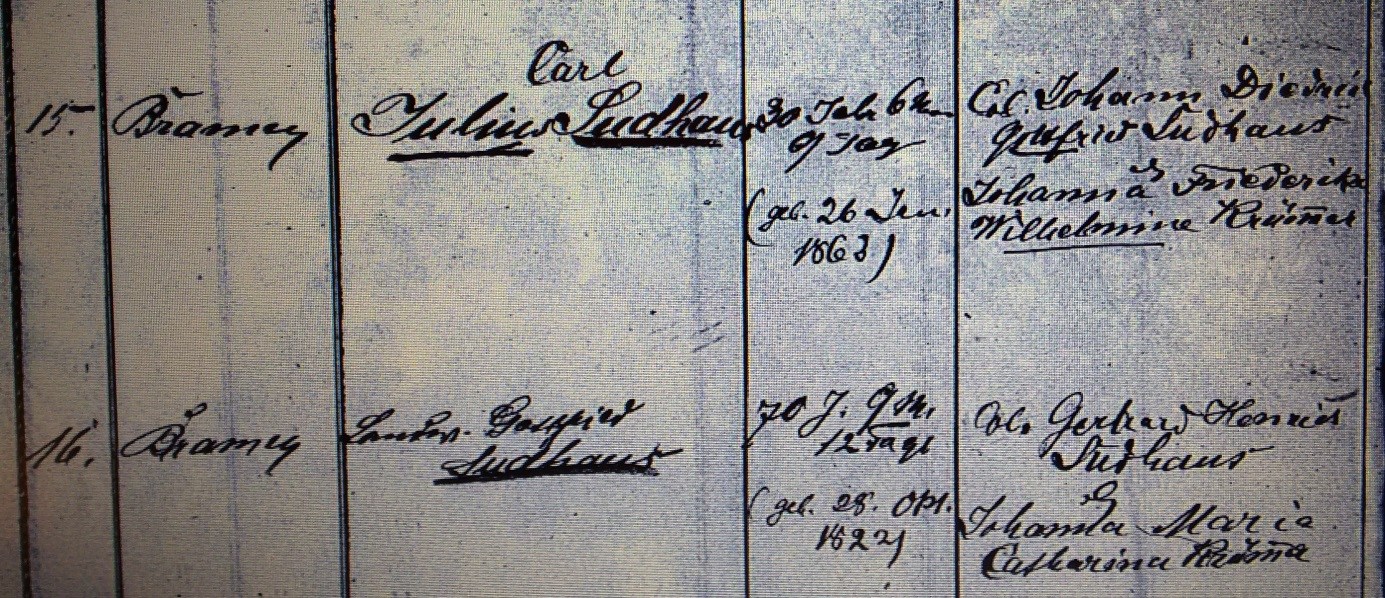 15. Bramey Carl
Julius Sudhaus
30 Jah 6 M.
9 Tag
(geb. 26 Jan.
1863)
Col. Johann Diedrich
Gottfried Sudhaus
Johanna Friederike
Wilhelmine
16. Bramey Landw. Gottfried
Sudhaus
70 J. 9 M.
12 Tage
(geb. 28. Okt.
1822)
Col. Gerhard Henrich
Sudhaus
Johanna Maria
Catharina